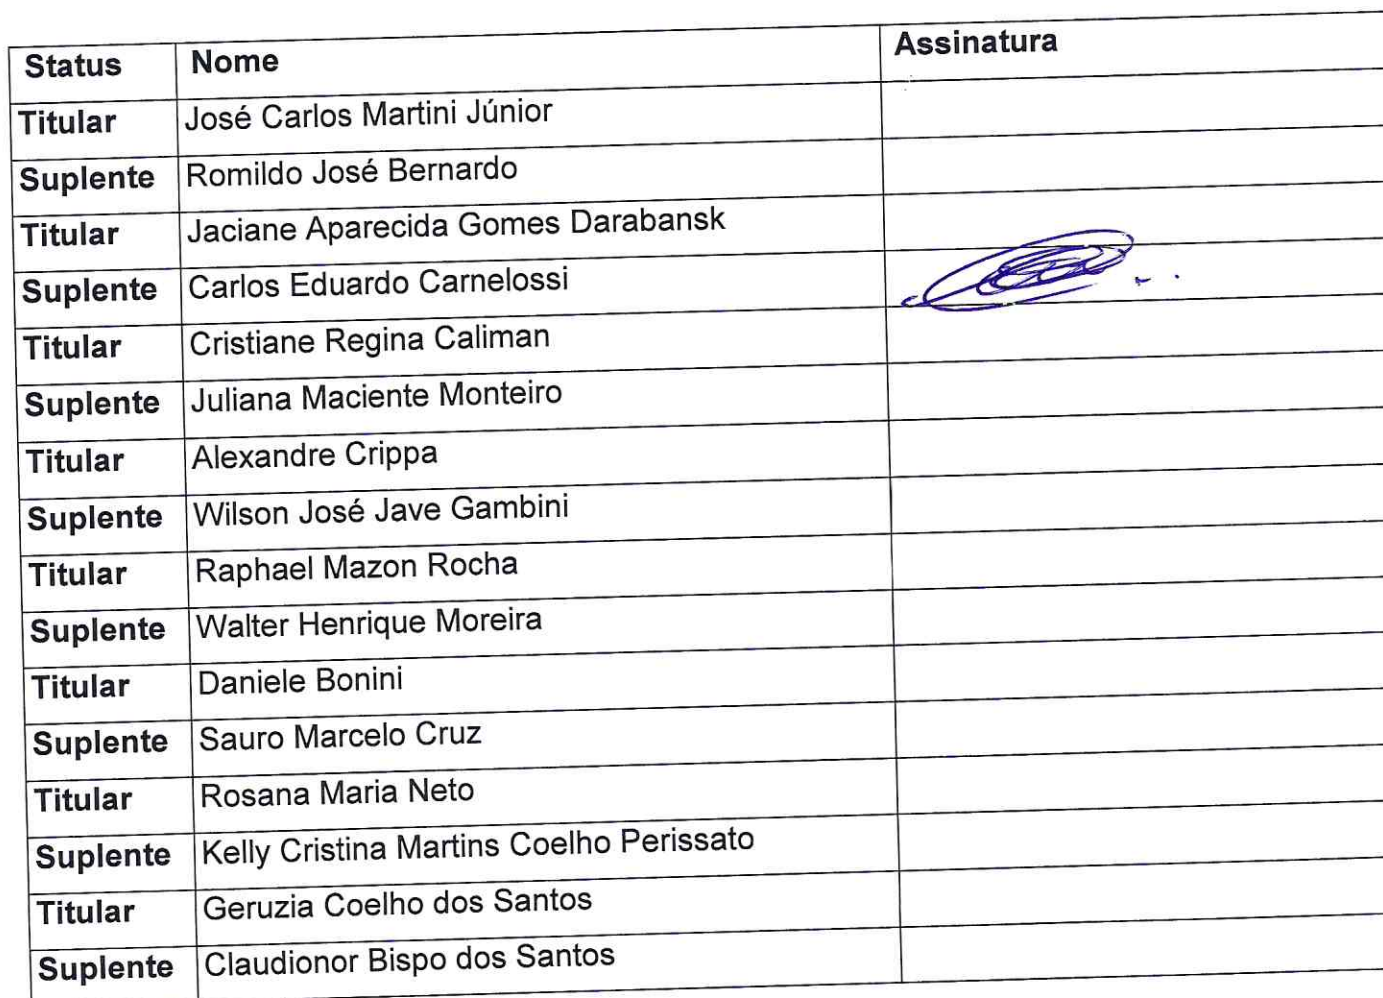 Status Nome Assinatura
Titular José Carlos Martini Júnior
Suplente Romildo José Bernardo
Titular Jaciane Aparecida Gomes Darabansk
Suplente Carlos Eduardo Carnelossi
Titular Cristiane Regina Caliman
Suplente Juliana Maciente Monteiro
Titular Alexandre Crippa
Suplente Wilson José Jave Gambini
Titular Raphael Mazon Rocha
Suplente Walter Henrique Moreira
Titular Daniele Bonini
Suplente Sauro Marcelo Cruz
Titular Rosana Maria Neto
Suplente Kelly Cristina Martins Coelho Perissato
Titular Geruzia Coelho dos Santos
Suplente Claudionor Bispo dos Santos